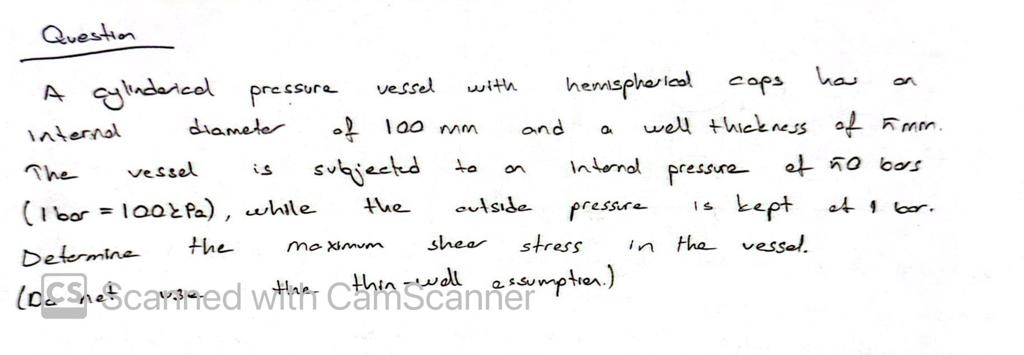 Question
A cylinderical pressure vessel with hemispherical caps has an
internal diameter of 100 mm and a wall thickness of 5mm.
The vessel is subjected to an internal pressure of 50 bars
(1 bar = 100kPa), while the outside pressure is kept at 1 bar.
Determine the maximum shear stress in the vessel.
(Do not use the thin-wall assumption.)
CS Scanned with CamScanner